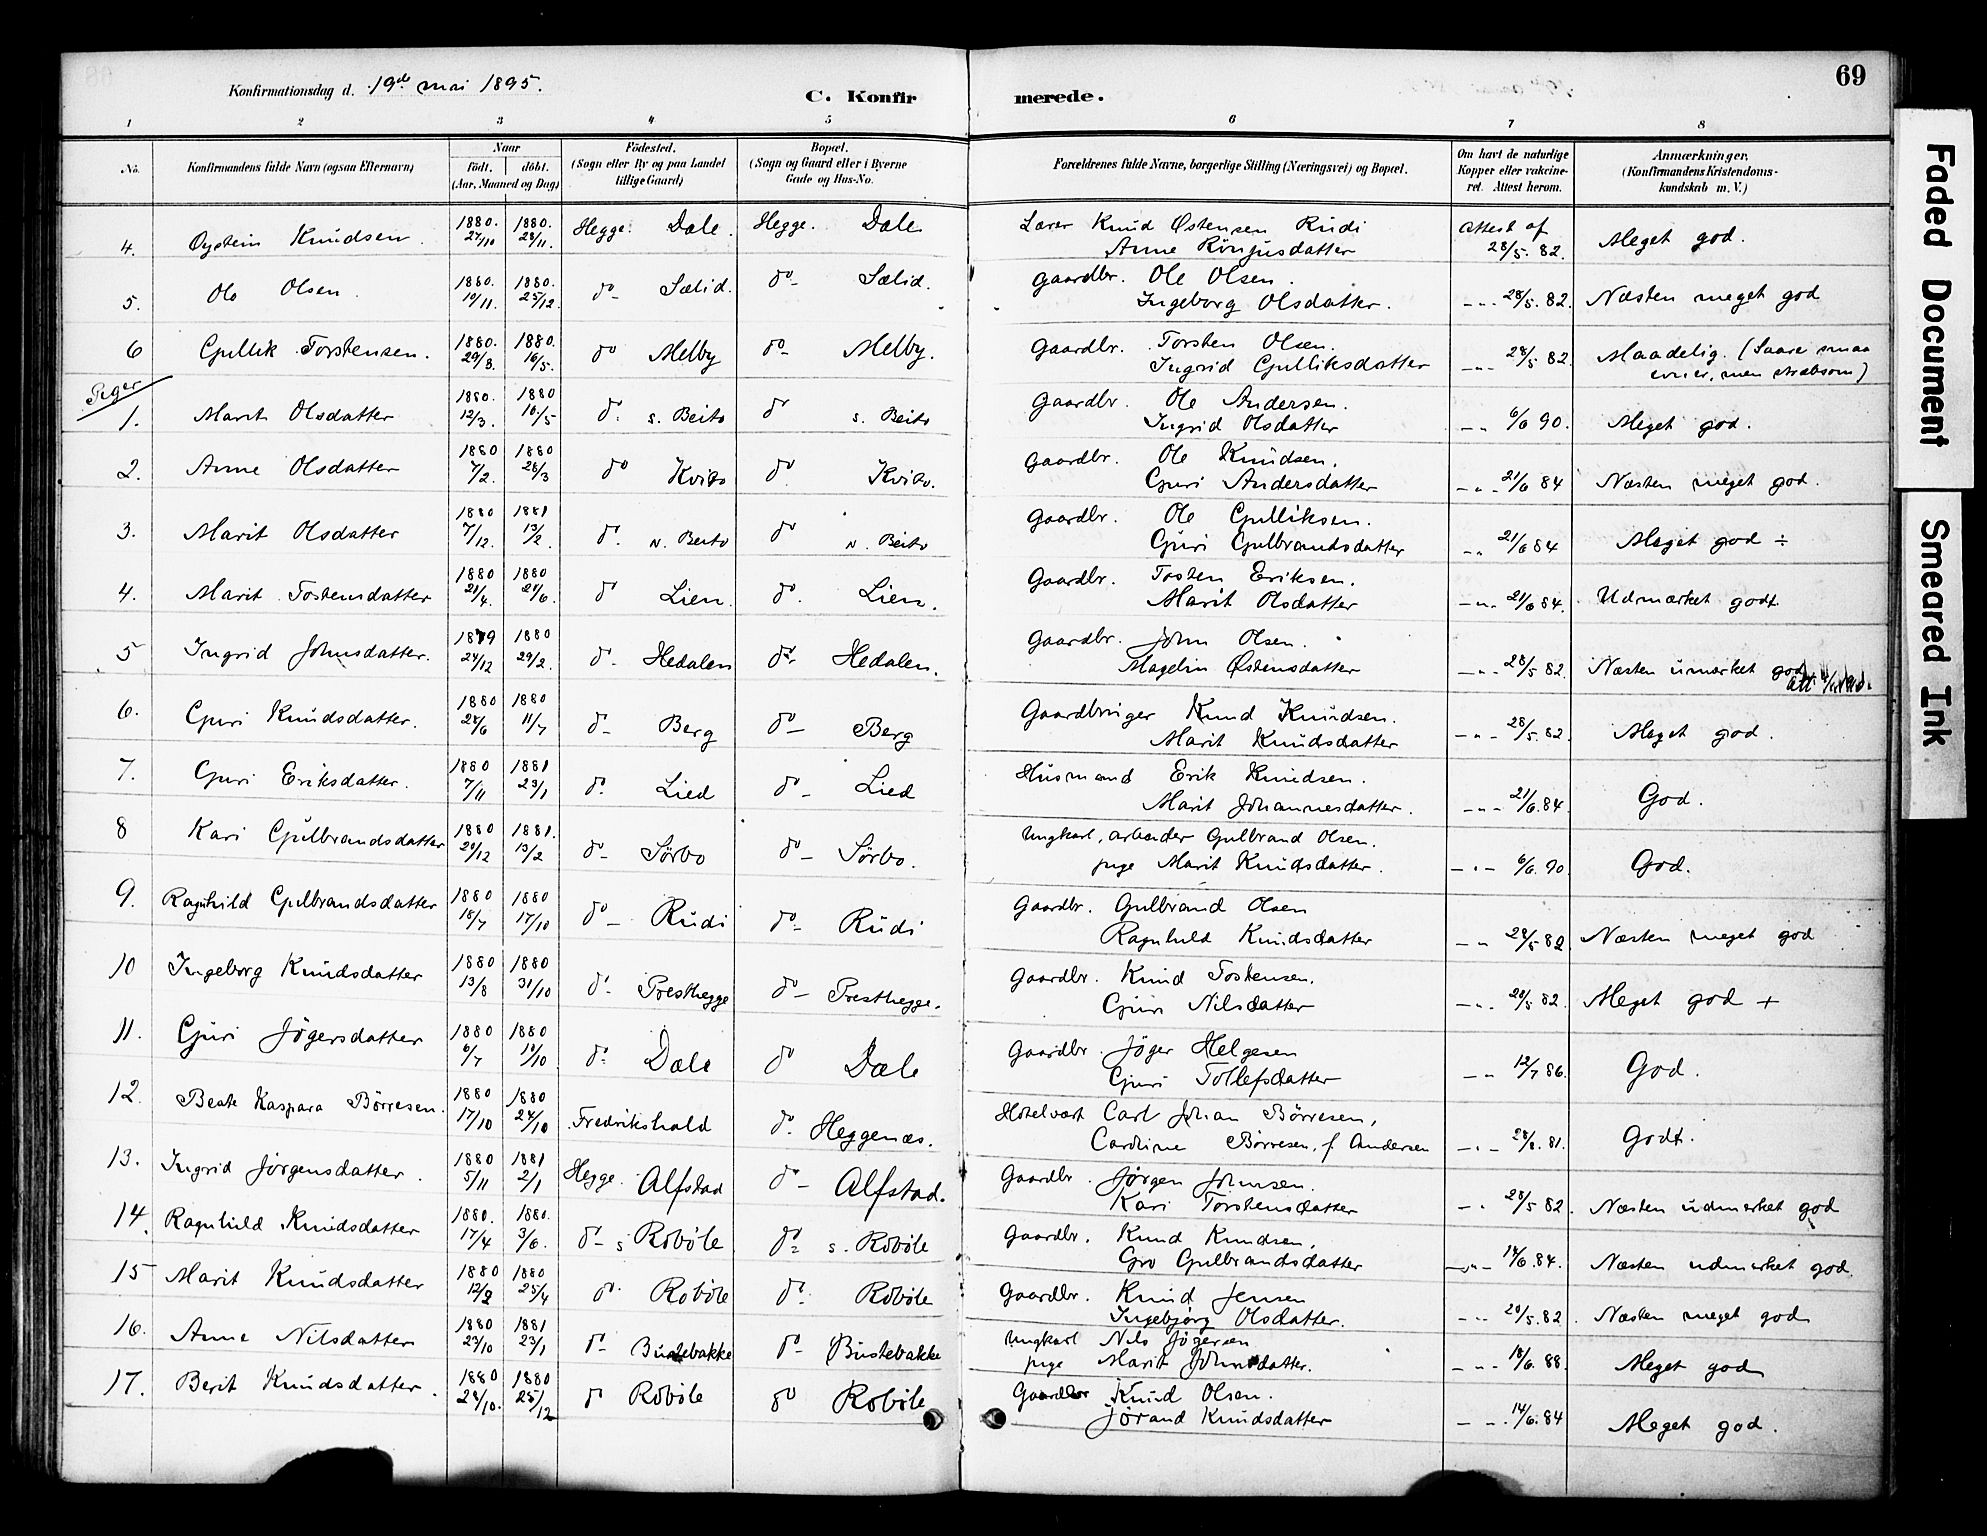 69
Konfirmationsdag d. 19de mai 1895.
C. Konfirmerede.
1 2 3 4 5 6 7 8
No. Konfirmandens fulde Navn (ogsaa Efternavn) Naar födt. döbt. (Aar, Maaned og Dag) Födested. (Sogn eller By og paa Landet tillige Gaard) Bopæl. (Sogn og Gaard eller i Byerne Gade og Hus-No. Forældrenes fulde Navne, borgerlige Stilling (Næringsvei) og Bopæl. Om havt de naturlige Kopper eller vakcineret. Attest herom. Anmærkninger. (Konfirmandens Kristendomskundskab m. V.)
4. Øystein Knudsen. 1880. 27/10 1880. 28/11. Hegge. Dale. Hegge. Dale Lærer Knud Østensen Rudi Attest af
Anne Ringjusdatter 28/5. 82. Meget god.
5. Ole Olsen. 1880. 10/11. 1880. 25/12. do- Sælid. do- Sælid. Gaardbr. Ole Olsen.
Ingeborg Olsdatter. -"- 28/5. 82. Næsten meget god
6 Gullik Torstensen. 1880. 29/3. 1880. 16/5. do Melby do- Melby. Gaardbr. Torsten Olsen.
Ingrid Gulliksdatter -"- 28/5 82 Maadelig. (Saare smaa
evner, men stræbsom)
Piger
1. Marit Olsdatter 1880. 12/3. 1880 16/5 do. s. Beito do s. Beito Gaardbr. Ole Andersen.
Ingrid Olsdatter -"- 6/6 90. Meget god.
2. Anne Olsdatter 1880 7/2. 1880 28/3 do Kvito do. Kvito. Gaardbr. Ole Knudsen.
Guri Andersdatter -"- 21/6 84 Næsten meget god.
3. Marit Olsdatter 1880 7/12. 1881 13/2 do. N. Beito do N. Beito Gaardbr. Ole Gulliksen.
Guri Gulbrandsdatter -"- 21/6 84 Meget god ÷
4. Marit Tostensdatter 1880 21/4. 1880 27/6. do Lien. do. Lien. Gaardbr. Tosten Eriksen.
Marit Olsdatter -"- 21/6 84. Udmærket godt
5 Ingrid Johnsdatter. 1879 24/12 1880 29/2. do- Hedalen do- Hedalen. Gaardbr. John Olsen.
Magelin Østensdatter -"- 28/5 82. Næsten umærket god
6. Guri Knudsdatter. 1880 24/6 1880 11/7 do- Berg do- Berg Gaardbruger Knud Knudsen.
Marit Knudsdatter -"- 28/5. 82. Meget god.
7. Guri Eriksdatter. 1880 7/11 1881 23/1 do. Lied do- Lied Husmand Erik Knudsen.
Marit Johannesdatter. -"- 21/6. 84. God.
8 Kari Gulbrandsdatter 1880 20/12 1881. 13/2 do- Sørbo do- Sørbo. Ungkarl, arbeider Gulbrand Olsen.
pige Marit Knudsdatter. -"- 6/6. 90. God.
9. Ragnhild Gulbrandsdatter 1880 18/7 1880 17/10 do- Rudi do- Rudi Gaardbr. Gulbrand Olsen
Ragnhild Knudsdatter -"- 28/5 82 Næsten meget god
10 Ingeborg Knudsdatter 1880 13/8 1880 31/10 do- Presthegge do- Presthegge. Gaardbr. Knud Tostensen.
Guri Nilsdatter -"- 28/5 82. Meget god +
11. Guri Jøgersdatter 1880 6/7 1880 10/10 do- Dale do Dale Gaardbr. Jøger Helgesen
Guri Tollefsdatter -"- 12/7 86. God.
12. Beate Kaspara Børresen. 1880 17/10 1880 24/10 Fredrikshald do. Heggenæs. Hotelvært Carl Johan Børresen,
Caroline Børresen, f. Andersen -"- 28/8. 81. Godt.
13. Ingrid Jørgensdatter. 1880 5/11 1881 2/1 Hegge. Alfstad do- Alfstad. Gaardbr. Jørgen Johnsen.
Kari Torstensdatter -"- 28/5 82. Næsten udmerket god
14. Ragnhild Knudsdatter 1880. 17/4 1880. 3/6. do- s Robøle do- s. Robøle Gaardbr. Knud Knudsen.
Gro Gulbrandsdatter -"- 14/6. 84. Næsten udmerket god
15 Marit Knudsdatter 1880 12/2 1880 25/4 do. Robøle do. Robøle Gaardbr. Knud Jensen
Ingebjørg Olsdatter. -"- 28/5. 82. Næsten meget god
16. Anne Nilsdatter 1880 23/10 1881 23/1 do- Bustebakke do- Bustebakke Ungkarl Nils Jøgersen
pige Marit Johnsdatter. -"- 18/6. 88. Meget god
17. Berit Knudsdatter. 1880 28/10. 1880 25/12 do Robøle do Robøle Gaardbr Knud Olsen.
Jørand Knudsdatter -"- 14/6. 84 Meget god.
Faded Document
Smeared Ink